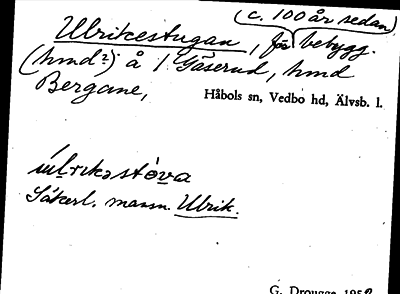 (c. 100 år sedan)
Ulrikestugan, för bebygg.
(hmd?) å 1 Gäserud, hmd
Bergane,
Håbols sn, Vedbo hd, Älvsb. l.
ùlrikəstóva
Säkerl. mansn. Ulrik.
G. Drougge 1952